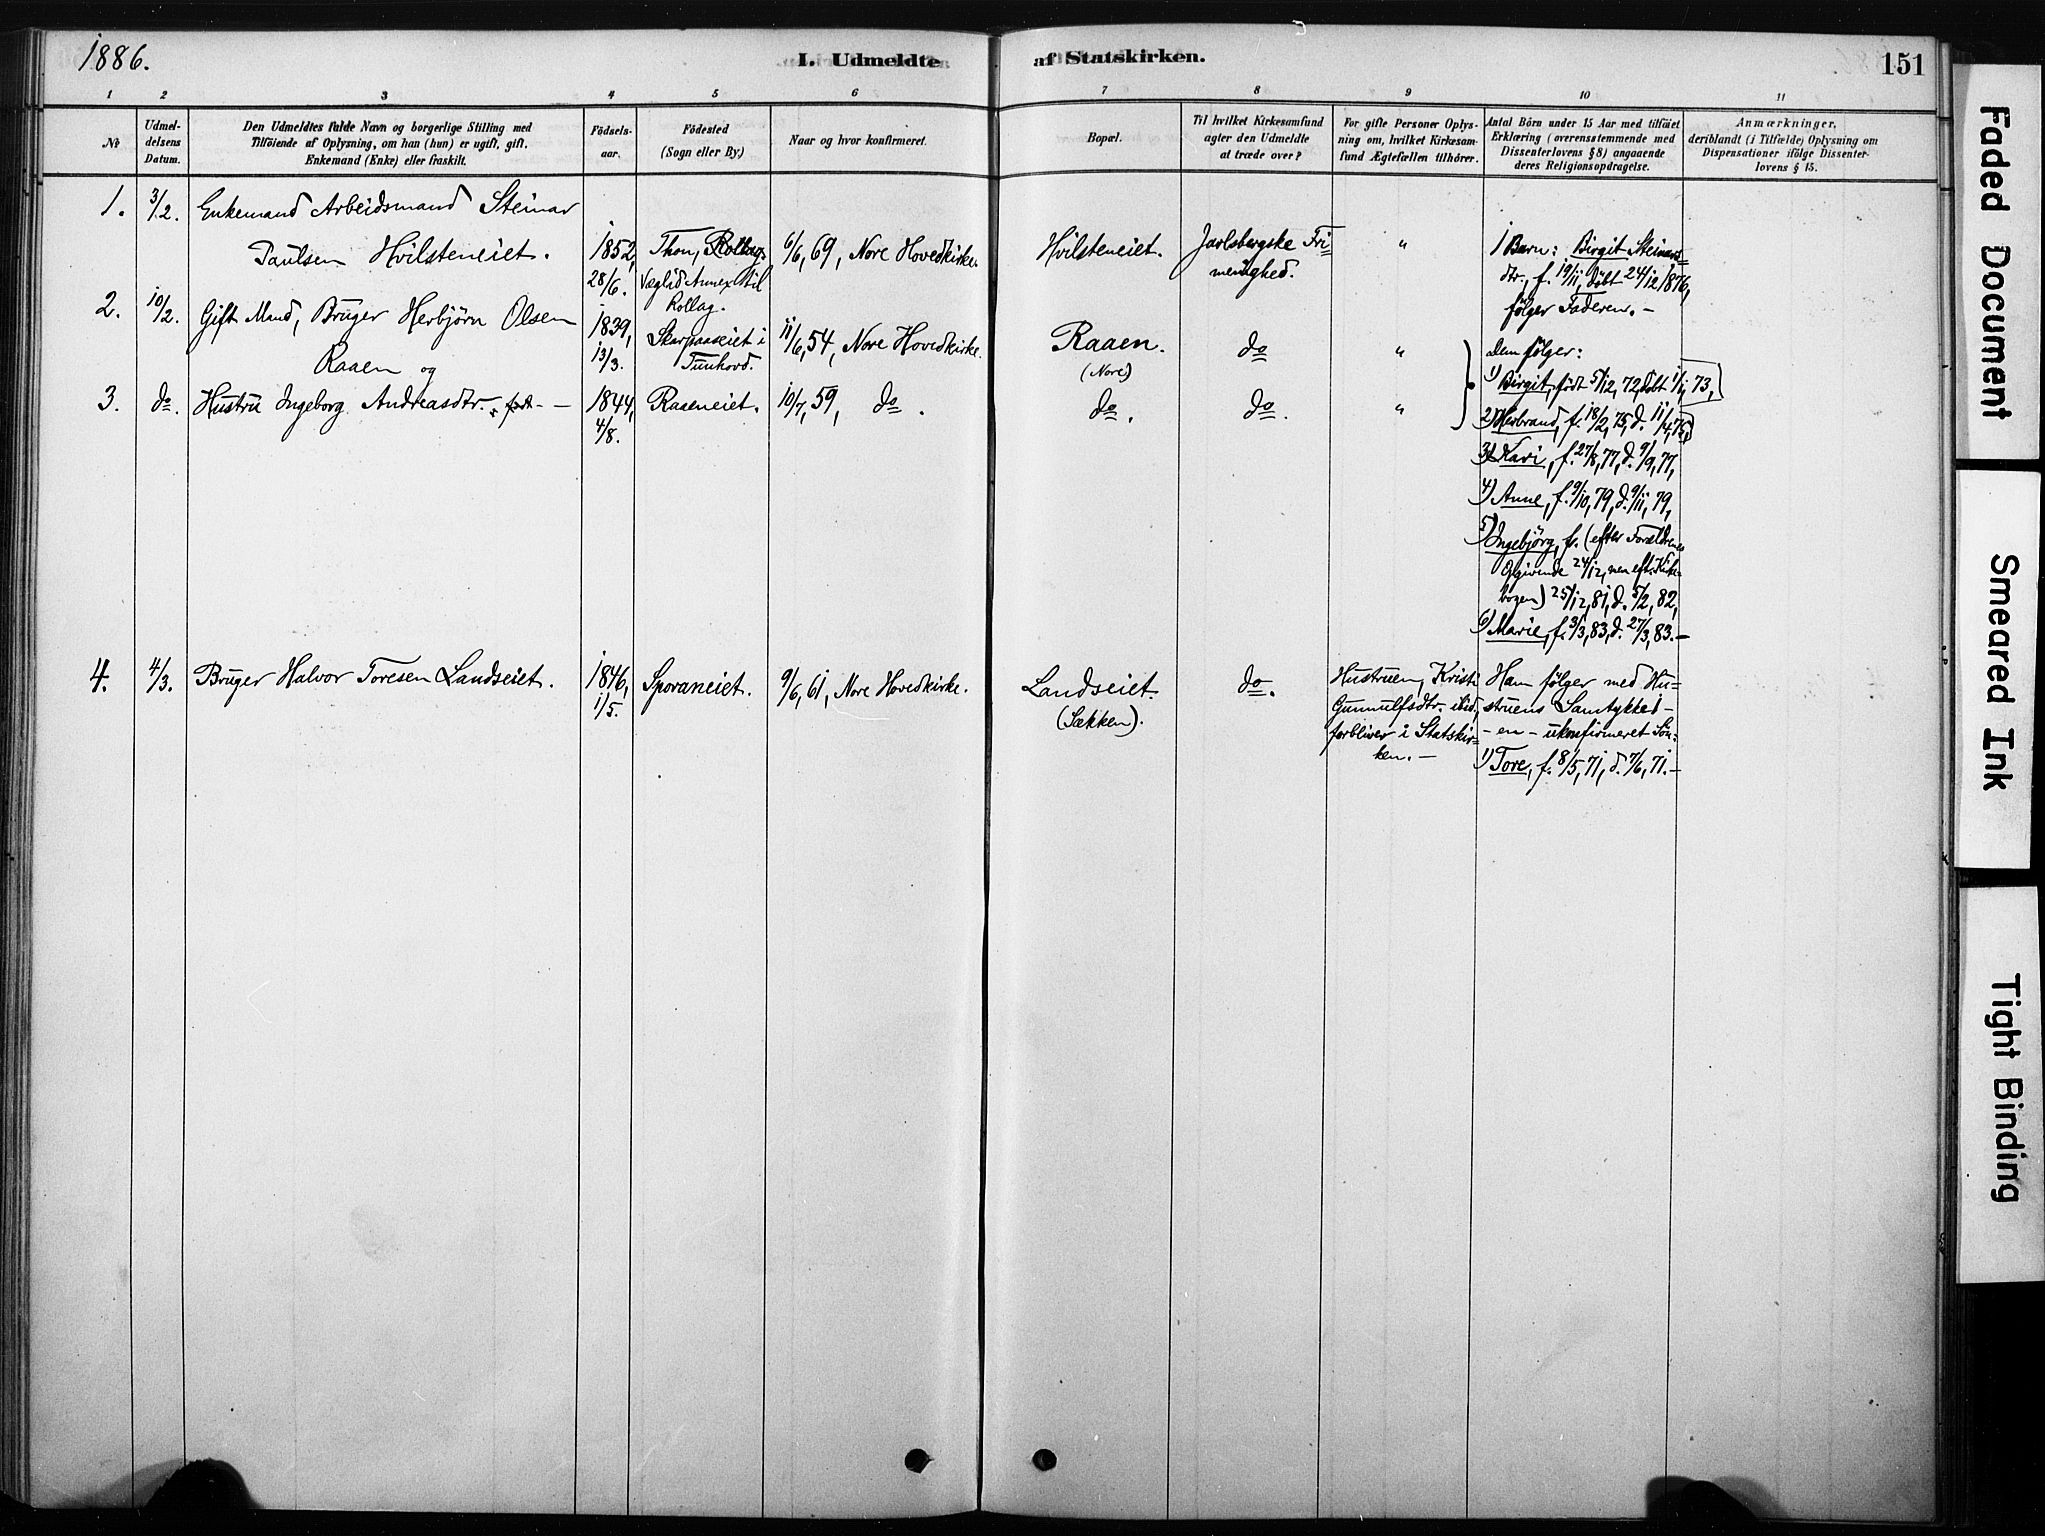 1886.
I. Udmeldte
af Statskirken.
151
1 2 3 4 5 6 7 8 9 10 11
Nr
Udmel-
delsens
Datum.
Den Udmeldtes fulde Navn og borgerlige Stilling med
Tilföiende af Oplysning, om han (hun) er ugift, gift,
Enkemand (Enke) eller fraskilt.
Födsels-
aar.
Födested
(Sogn eller By.)
Naar og hvor konfirmeret.
Bopæl.
Til hvilket Kirkesamfund
agter den Udmeldte
at træde over?
For gifte Personer Oplys-
ning om, hvilket Kirkesam-
fund Ægtefællen tilhörer.
Antal Börn under 15 Aar med tilföiet
Erklæring (overensstemmende med
Dissenterlovens § 8) angaaende
deres Religionsopdragelse.
Anmærkninger,
deriblandt (i Tilfælde) Oplysning om
Dispensationer ifölge Dissenter-
lovens § 15.
1. 3/2. Enkemand Arbeidsmand Steinar
Paulsen Hvilsteneiet.
1852,
28/6.
Thon, Rollag,
Væglid Annex til
Rollag.
6/6, 69, Nore Hovedkirke.
Hvilsteneiet.
Jarlsbergske Fri-
menighed.
"
1 Barn: Birgit Steinars-
dtr., f. 19/11, döbt 24/12 1876,
fölger Faderen. -
2. 10/2. Gift Mand, Bruger Herbjörn Olsen
Raaen og
1839,
13/3.
Skarpaaseiet i
Tunhovd.
11/6, 54, Nore Hovedkirke.
Raaen.
(Nore)
do
"
Dem fölger:
1) Birgit, födt 5/12, 72, döbt 1/1, 73,
3. do. Hustru Ingeborg Andreasdtr. -
1844,
4/8.
Raaeneiet.
10/7, 59, do.
do.
do.
"
2) Herbrand, f. 18/2, 75, d. 11/4, 75,
3) Kari, f. 27/8, 77, d. 9/9, 77,
4) Anne, f. 9/10, 79, d. 9/11, 79,
5) Ingebjörg, f. (efter Forældrenes
Opgivende 24/12, men eft. Kirke-
bogen) 25/12, 81, d. 5/2, 82,
6) Marie, f. 3/3, 83, d. 27/3, 83. -
4. 4/3. Bruger Halvor Toresen Landseiet.
1846,
1/5.
Sporaneiet.
9/6, 61, Nore Hovedkirke.
Landseiet.
(Sækken).
do.
Hustruen, Kristi
Gunnulfsdtr. ibid.,
forbliver i Statskir-
ken. -
Ham fölger med Hu-
struens Samtykke 1 -
- en - ukonfirmeret Sön:
1) Tore, f. 8/5, 71, d. 7/6, 71. -
Faded Document
Smeared Ink
Tight Binding